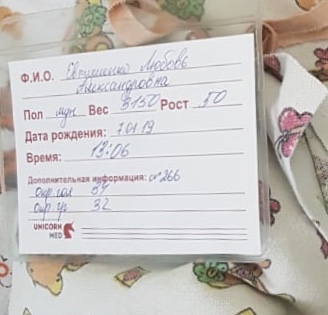 Ф.И.О. Евтушенко Любовь
Александровна
Пол муж Вес 3150 Рост 50
Дата рождения: 7.01.19
Время: 13:06
Дополнительная информация: сн 266
окр. гол 34
окр. гр 32
UNICORN
MED